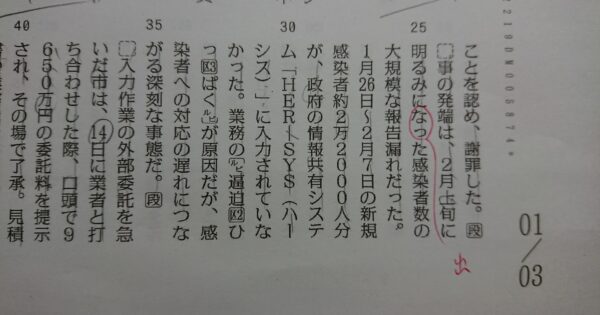 01/03
ことを認め、謝罪した。段
25
事の発端は、2月上旬に
明るみになった感染者数の
出
大規模な報告漏れだった。
1月26日～2月7日の新規
感染者約2万2000人分
が、政府の情報共有システ
30
ム「HER―SYS(ハー
シス)」に入力されていな
かった。業務のルビ逼迫
っぱくルビが原因だが、感
染者への対応の遅れにつな
35
がる深刻な事態だ。段
入力作業の外部委託を急
いだ市は、14日に業者と打
ち合わせした際、口頭で9
650万円の委託料を提示
40
され、その場で了承。見積